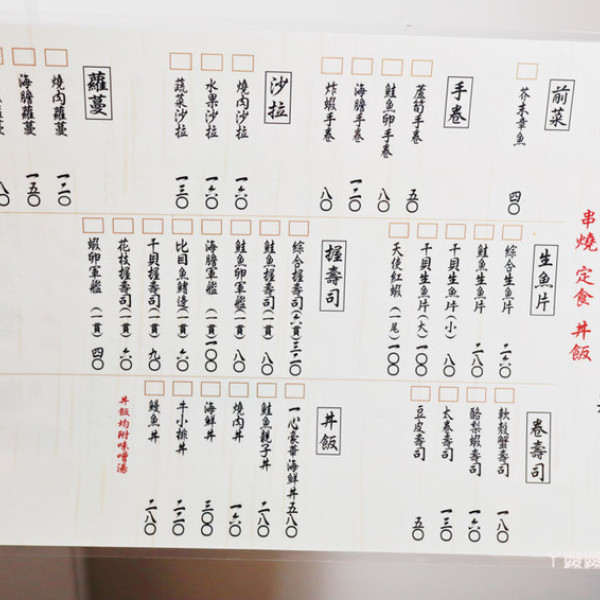 串燒 定食 丼飯
前菜
芥末章魚 四〇
手卷
蘆筍手卷 五〇
鮭魚卵手卷 八〇
海膽手卷 一二〇
炸蝦手卷 八〇
沙拉
燒肉沙拉 一六〇
水果沙拉 一六〇
蔬菜沙拉 一三〇
蘿蔓
燒肉蘿蔓 一二〇
海膽蘿蔓 一五〇
蘿蔓 八〇
生魚片
綜合生魚片 二六〇
鮭魚生魚片 二八〇
干貝生魚片(小) 八〇
干貝生魚片(大) 一〇〇
天使紅蝦(一尾) 一〇〇
握壽司
綜合握壽司(六貫) 三二〇
鮭魚握壽司(一貫) 八〇
鮭魚卵軍艦(一貫) 八〇
海膽軍艦(一貫) 一〇〇
比目魚鰭邊(一貫) 六〇
干貝握壽司(一貫) 九〇
花枝握壽司(一貫) 六〇
蝦卵軍艦(一貫) 四〇
卷壽司
軟殼蟹壽司 一八〇
酪梨蝦壽司 一六〇
太卷壽司 一三〇
豆皮壽司 五〇
丼飯
一心豪華海鮮丼 五八〇
鮭魚親子丼 二八〇
燒肉丼 一六〇
海鮮丼 三〇〇
牛小排丼 二二〇
鰻魚丼 二八〇
丼飯均附味噌湯